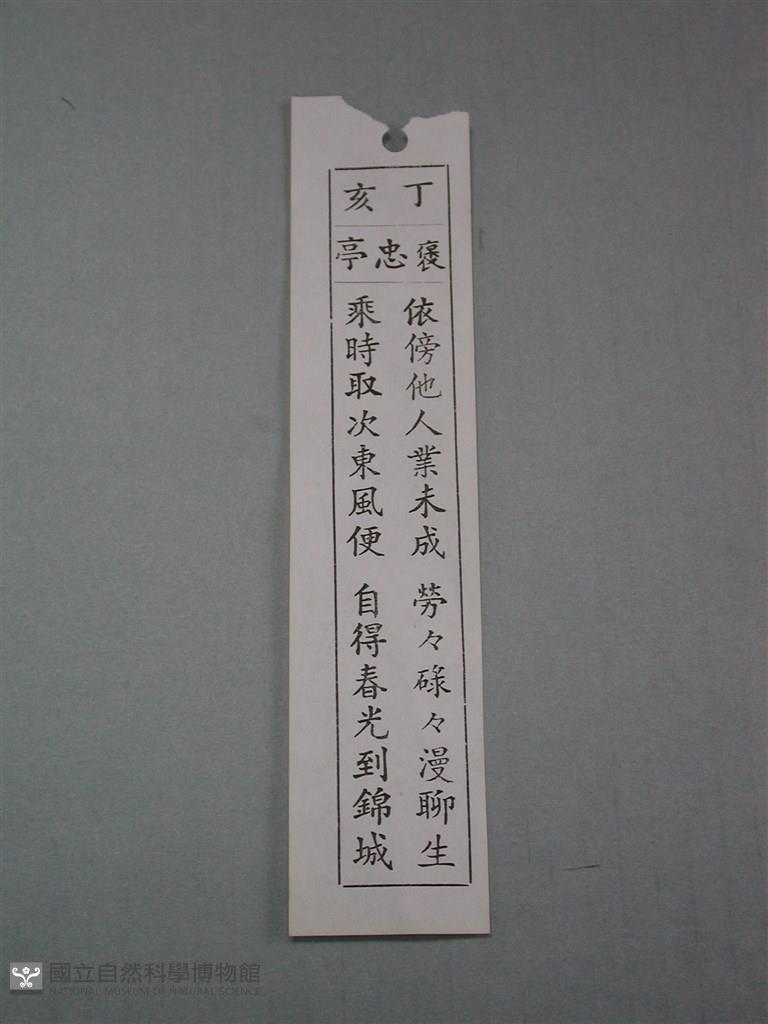 丁亥
褒忠亭
依傍他人業未成 勞々碌々漫聊生
乘時取次東風便 自得春光到錦城
國立自然科學博物館
NATIONAL MUSEUM OF NATURAL SCIENCE